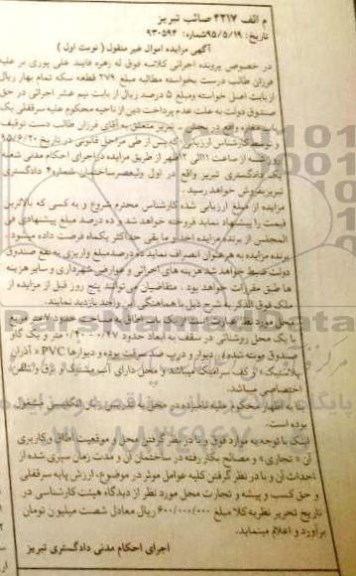 م الف ۴۲۱۷ صائب تبریز
تاریخ: ۹۵/۵/۱۹ شماره: ۹۳۰۵۹۴
آگهی مزایده اموال غیر منقول ( نوبت اول )
در خصوص پرونده اجرائی کلاسه فوق له زهره فایند علی پوری بر علیه
فرزان طالب درست بخواسته مطالبه مبلغ ۲۷۹ قطعه سکه تمام بهار ریال
از بابت اصل خواسته ومبلغ ۵ درصد ریال از بابت نیم عشر اجرائی در حق
صندوق دولت به علت عدم پرداخت دین از ناحیه محکوم علیه سرقفلی یک
واقع در متعلق به آقای فرزان طالب دست توقیف
و توسط کارشناس ارزیابی که پس از طی مراحل قانونی در تاریخ ۹۵/۶/۲۰
شنبه از ساعت ۱۱ الی ۱۲ ظهر از طریق مزایده در اجرای احکام مدنی شعبه
یک دادگستری تبریز واقع در اول ولیعصر ساختمان شماره ۴ دادگستری
تبریز بفروش خواهد رسید.
مزایده از مبلغ ارزیابی شده کارشناس محترم شروع و به کسی که بالاترین
قیمت را پیشنهاد نماید فروخته خواهد شد و ده درصد مبلغ پیشنهادی فی
المجلس از برنده مزایده اخذ و ما بقی حداکثر یکماه فرصت داده میشود.
برنده مزایده به هر عنوان انصراف نماید ده درصد مبلغ واریزی به نفع صندوق
دولت ضبط خواهد شد هزینه های اجرائی و عوارض شهرداری و سایر هزینه
ها طبق مقررات خواهد بود. متقاضیان می توانند پنج روز قبل از مزایده از
ملک فوق الذکر به شرح ذیل با هماهنگی این واحد بازدید نمایند.
محل مورد نظر عبارت است از یک باب اطاق به مساحت حدود ۷ متر مربع
با یک محل روشنائی در سقف به ابعاد حدود متر و یک گاو
صندوق مونته شده از دیوار و درب ضد سرقت بوده و دیوارها PVC « آذران
پلاستیک » کف سرامیک میباشد و محل دارای آب مشترک و برق و تلفن
اختصاصی میباشد.
بنا به اظهار محکوم علیه نامبرده در محل به تدریس زبان انگلیسی مشغول
بوده است.
اینک با توجه به موارد فوق و با در نظر گرفتن محل و موقعیت اطاق و کاربری
آن « تجاری » و مصالح بکار رفته در ساختمان آن و مدت زمان سپری شده از
احداث آن و با در نظر گرفتن کلیه عوامل موثر در موضوع، ارزش پایه سرقفلی
و حق کسب و پیشه و تجارت محل مورد نظر از دیدگاه هیئت کارشناسی در
تاریخ تحریر نظریه کلا مبلغ ۶۰۰/۰۰۰/۰۰۰ ریال معادل شصت میلیون تومان
برآورد و اعلام مینماید.
اجرای احکام مدنی دادگستری تبریز
ParsNamadData